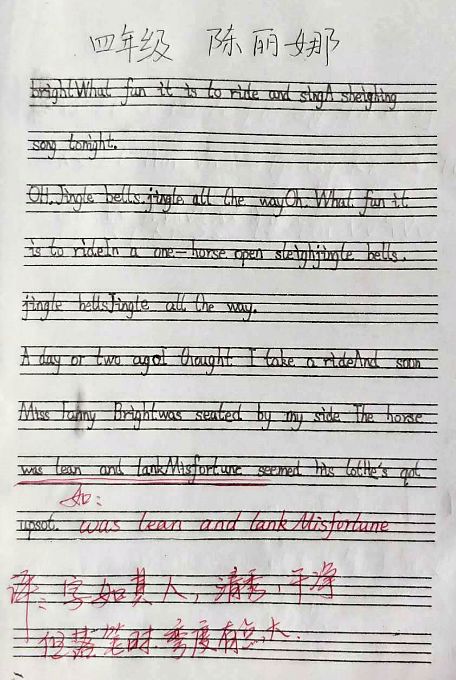 四年级 陈丽娜
brightWhat fun it is to ride and singA sleighing
song tonight.
OH.Jingle bells.jingle all the wayOh. What fun it
is to rideIn a one-horse open sleighjingle bells.
jingle bellsJingle all the way.
A day or two agoI thought I take a rideAnd soon
Miss Fanny Brightwas seated by my side The horse
was lean and lankMisfortune seemed his lotHe's got
如:
upsot. was lean and lank Misfortune
评:字如其人,清秀,干净
但落笔时弯度有点大.